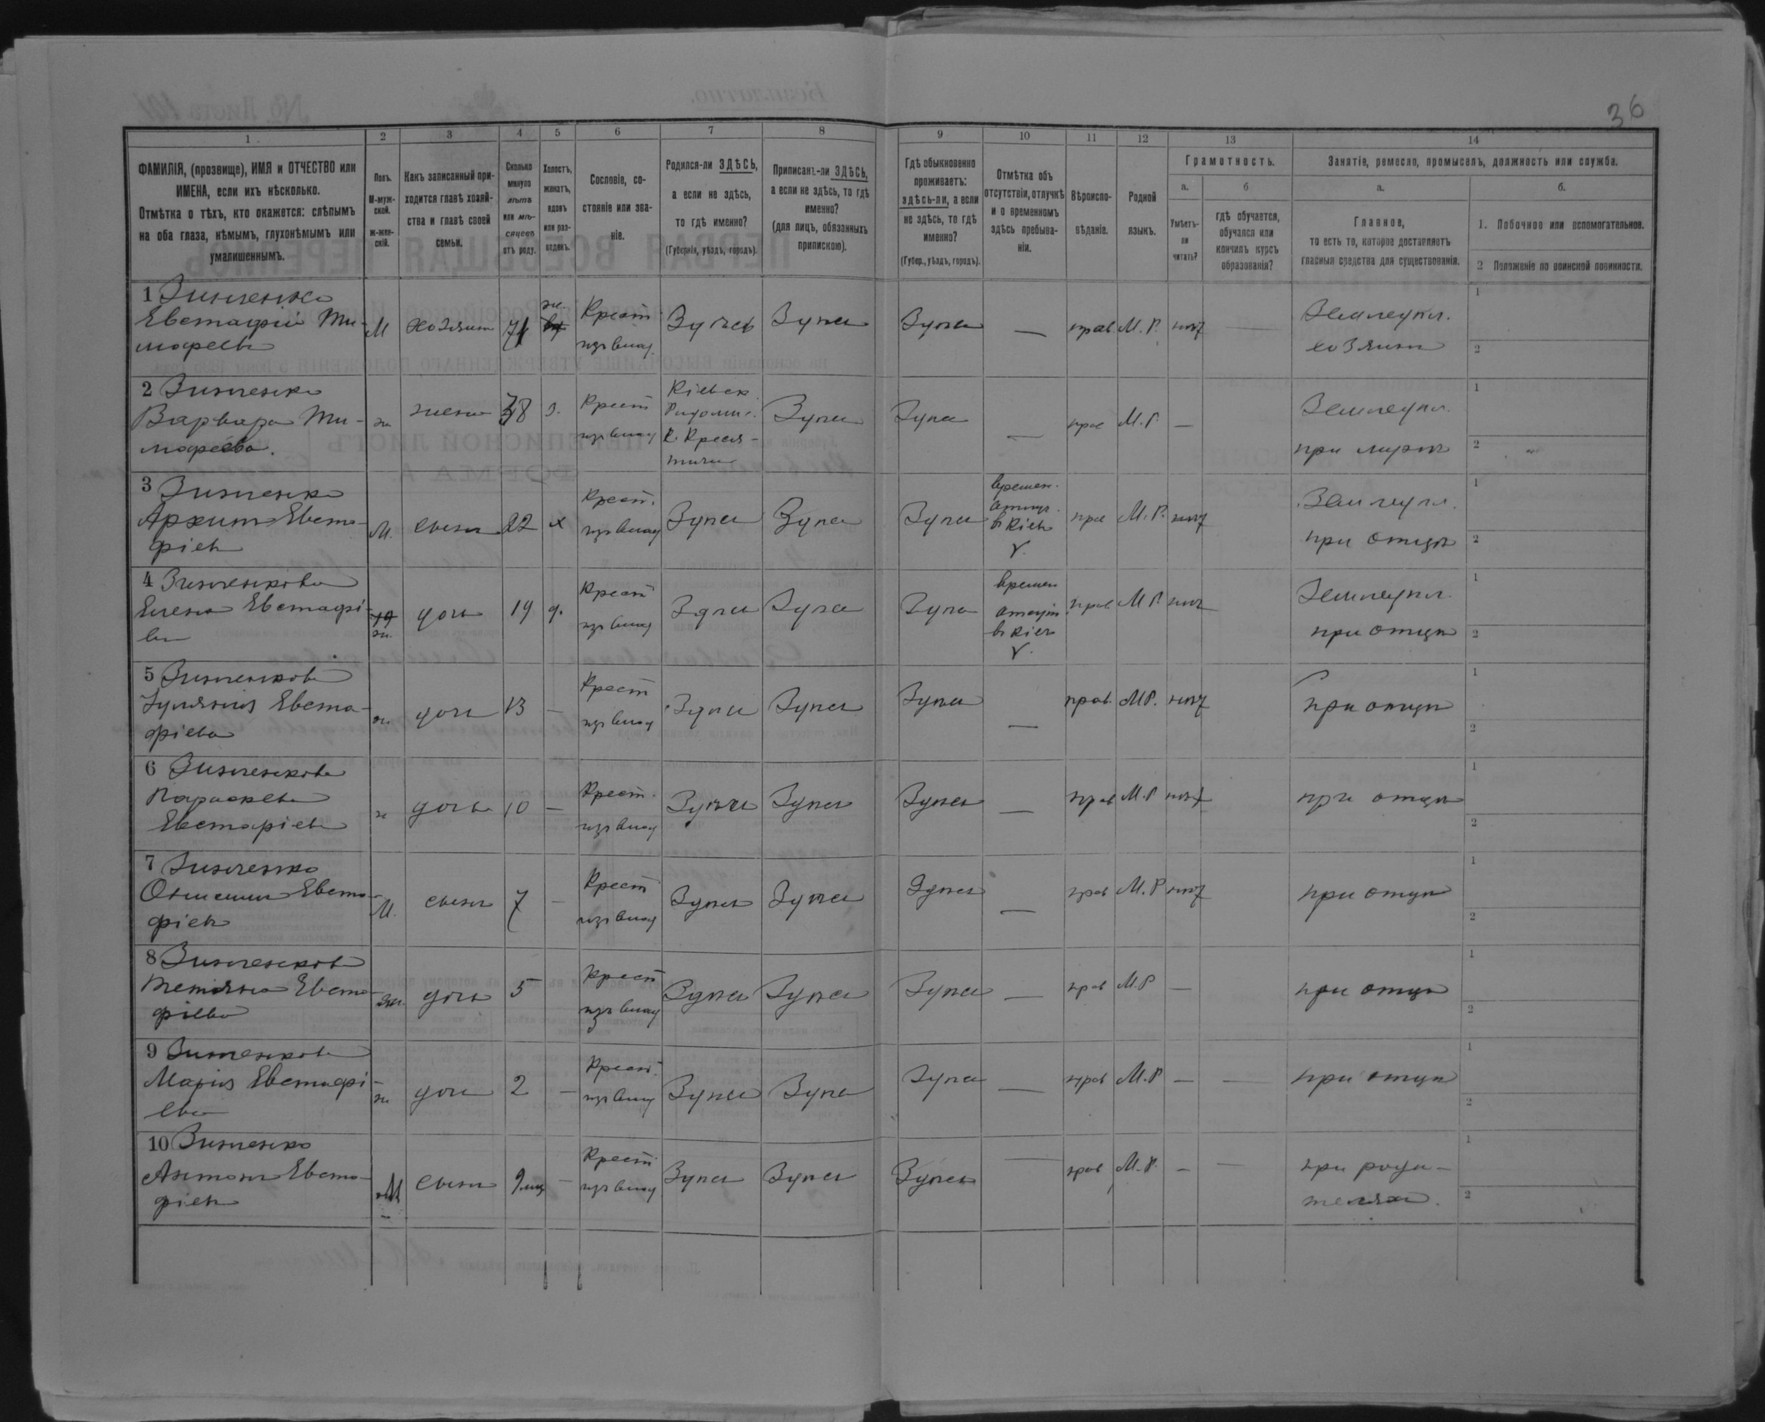 36
1 2 3 4 5 6 7 8 9 10 11 12 13 14
ФАМИЛІЯ, (прозвище), ИМЯ и ОТЧЕСТВО или
ИМЕНА, если ихъ нѣсколько.
Отмѣтка о тѣхъ, кто окажется: слѣпымъ
на оба глаза, нѣмымъ, глухонѣмымъ или
умалишеннымъ.
Полъ.
М-муж-
ской.
Ж-жен-
скій.
Какъ записанный при-
ходится главѣ хозяй-
ства и главѣ своей
семьи.
Сколько
минуло
лѣтъ
или мѣ-
сяцевъ
отъ роду.
Холостъ,
женатъ,
вдовъ
или раз-
веденъ.
Сословіе, со-
стояніе или зва-
ніе.
Родился-ли ЗДѢСЬ,
а если не здѣсь,
то гдѣ именно?
(Губернія, уѣздъ, городъ).
Приписанъ-ли ЗДѢСЬ,
а если не здѣсь, то гдѣ
именно?
(для лицъ, обязанныхъ
припискою).
Гдѣ обыкновенно
проживаетъ:
здѣсь-ли, а если
не здѣсь, то гдѣ
именно?
(Губер., уѣздъ, городъ).
Отмѣтка объ
отсутствіи, отлучкѣ
и о временномъ
здѣсь пребыва-
ніи.
Вѣроиспо-
вѣданіе.
Родной
языкъ.
Грамотность.
а.
Умѣетъ-
ли
читать?
б
гдѣ обучается,
обучался или
кончилъ курсъ
образованія?
Занятіе, ремесло, промыселъ, должность или служба.
а.
Главное,
то есть то, которое доставляетъ
главныя средства для существованія.
б.
1. Побочное или вспомогательное.
2 Положеніе по воинской повинности.
1 Зинченко
Евстафій Ти-
мофеевъ
М хозяинъ ж Крест. Здѣсь Здѣсь Здѣсь — прав М.Р. нѣт Земледѣл.
хозяинъ
1
2
2 Зинченко
Варвара Ти-
мофеева.
ж жена 38 з. Крест Кіевск.
Радомыс.
Здѣсь Здѣсь — прав М.Р. — Земледѣл.
при мужѣ
1
2
3 Зинченко
Архипъ Евста-
фіев
М. сынъ 22 х Крест. Здѣсь Здѣсь Здѣсь времен.
отлуч.
в Кіев
прав М.Р. нѣт Земледѣл.
при отцѣ
1
2
4 Зинченкова
Елена Евстафі-
ева
ж. дочь 19 д. Крест Здѣсь Здѣсь Здѣсь времен
в Кіев
прав М.Р. нѣт Земледѣл.
при отцѣ
1
2
5 Зинченкова
Евста-
фіева
ж. дочь 13 — Крест Здѣсь Здѣсь Здѣсь — прав М.Р. нѣт при отцѣ
1
2
6 Зинченкова
Параскева
Евстафіев
ж дочь 10 — Крест. Здѣсь Здѣсь Здѣсь — прав М.Р нѣт при отцѣ
1
2
7 Зинченко
Евста-
фіев
М. сынъ 7 — Крест Здѣсь Здѣсь Здѣсь — прав М.Р нѣт при отцѣ
1
2
8 Зинченкова
Тетяна Евста-
фіева
ж. дочь 5 Крест Здѣсь Здѣсь Здѣсь — прав М.Р — при отцѣ
1
2
9 Зинченкова
Марія Евстафі-
ева
ж дочь 2 — Крест. Здѣсь Здѣсь Здѣсь — прав М.Р — — при отцѣ
1
2
10 Зинченко
Антонъ Евста-
фіев
М сынъ 9 мц — Крест Здѣсь Здѣсь Здѣсь — прав М.Р. — — при роди-
телях.
1
2